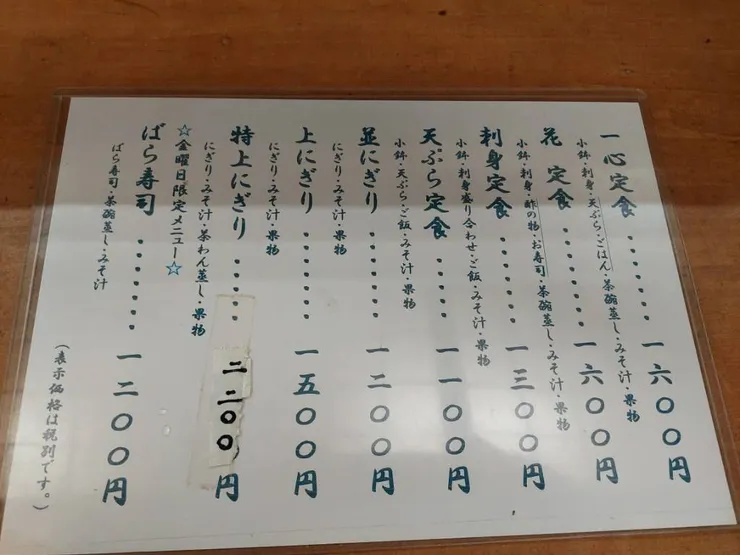 一心定食・・・・・・・一六〇〇円
小鉢・刺身・天ぷら・ごはん・茶碗蒸し・みそ汁・果物
花 定食・・・・・・・一六〇〇円
小鉢・刺身・酢の物・お寿司・茶碗蒸し・みそ汁・果物
刺身定食・・・・・・・一三〇〇円
小鉢・刺身盛り合わせ・ご飯・みそ汁・果物
天ぷら定食・・・・・・一一〇〇円
小鉢・天ぷら・ご飯・みそ汁・果物
並にぎり・・・・・・・一二〇〇円
にぎり・みそ汁・果物
上にぎり・・・・・・・一五〇〇円
にぎり・みそ汁・果物
特上にぎり・・・・・・二二〇〇円
にぎり・みそ汁・茶わん蒸し・果物
☆金曜日限定メニュー☆
ばら寿司・・・・・・・一二〇〇円
ばら寿司・茶碗蒸し・みそ汁
(表示価格は税別です。)